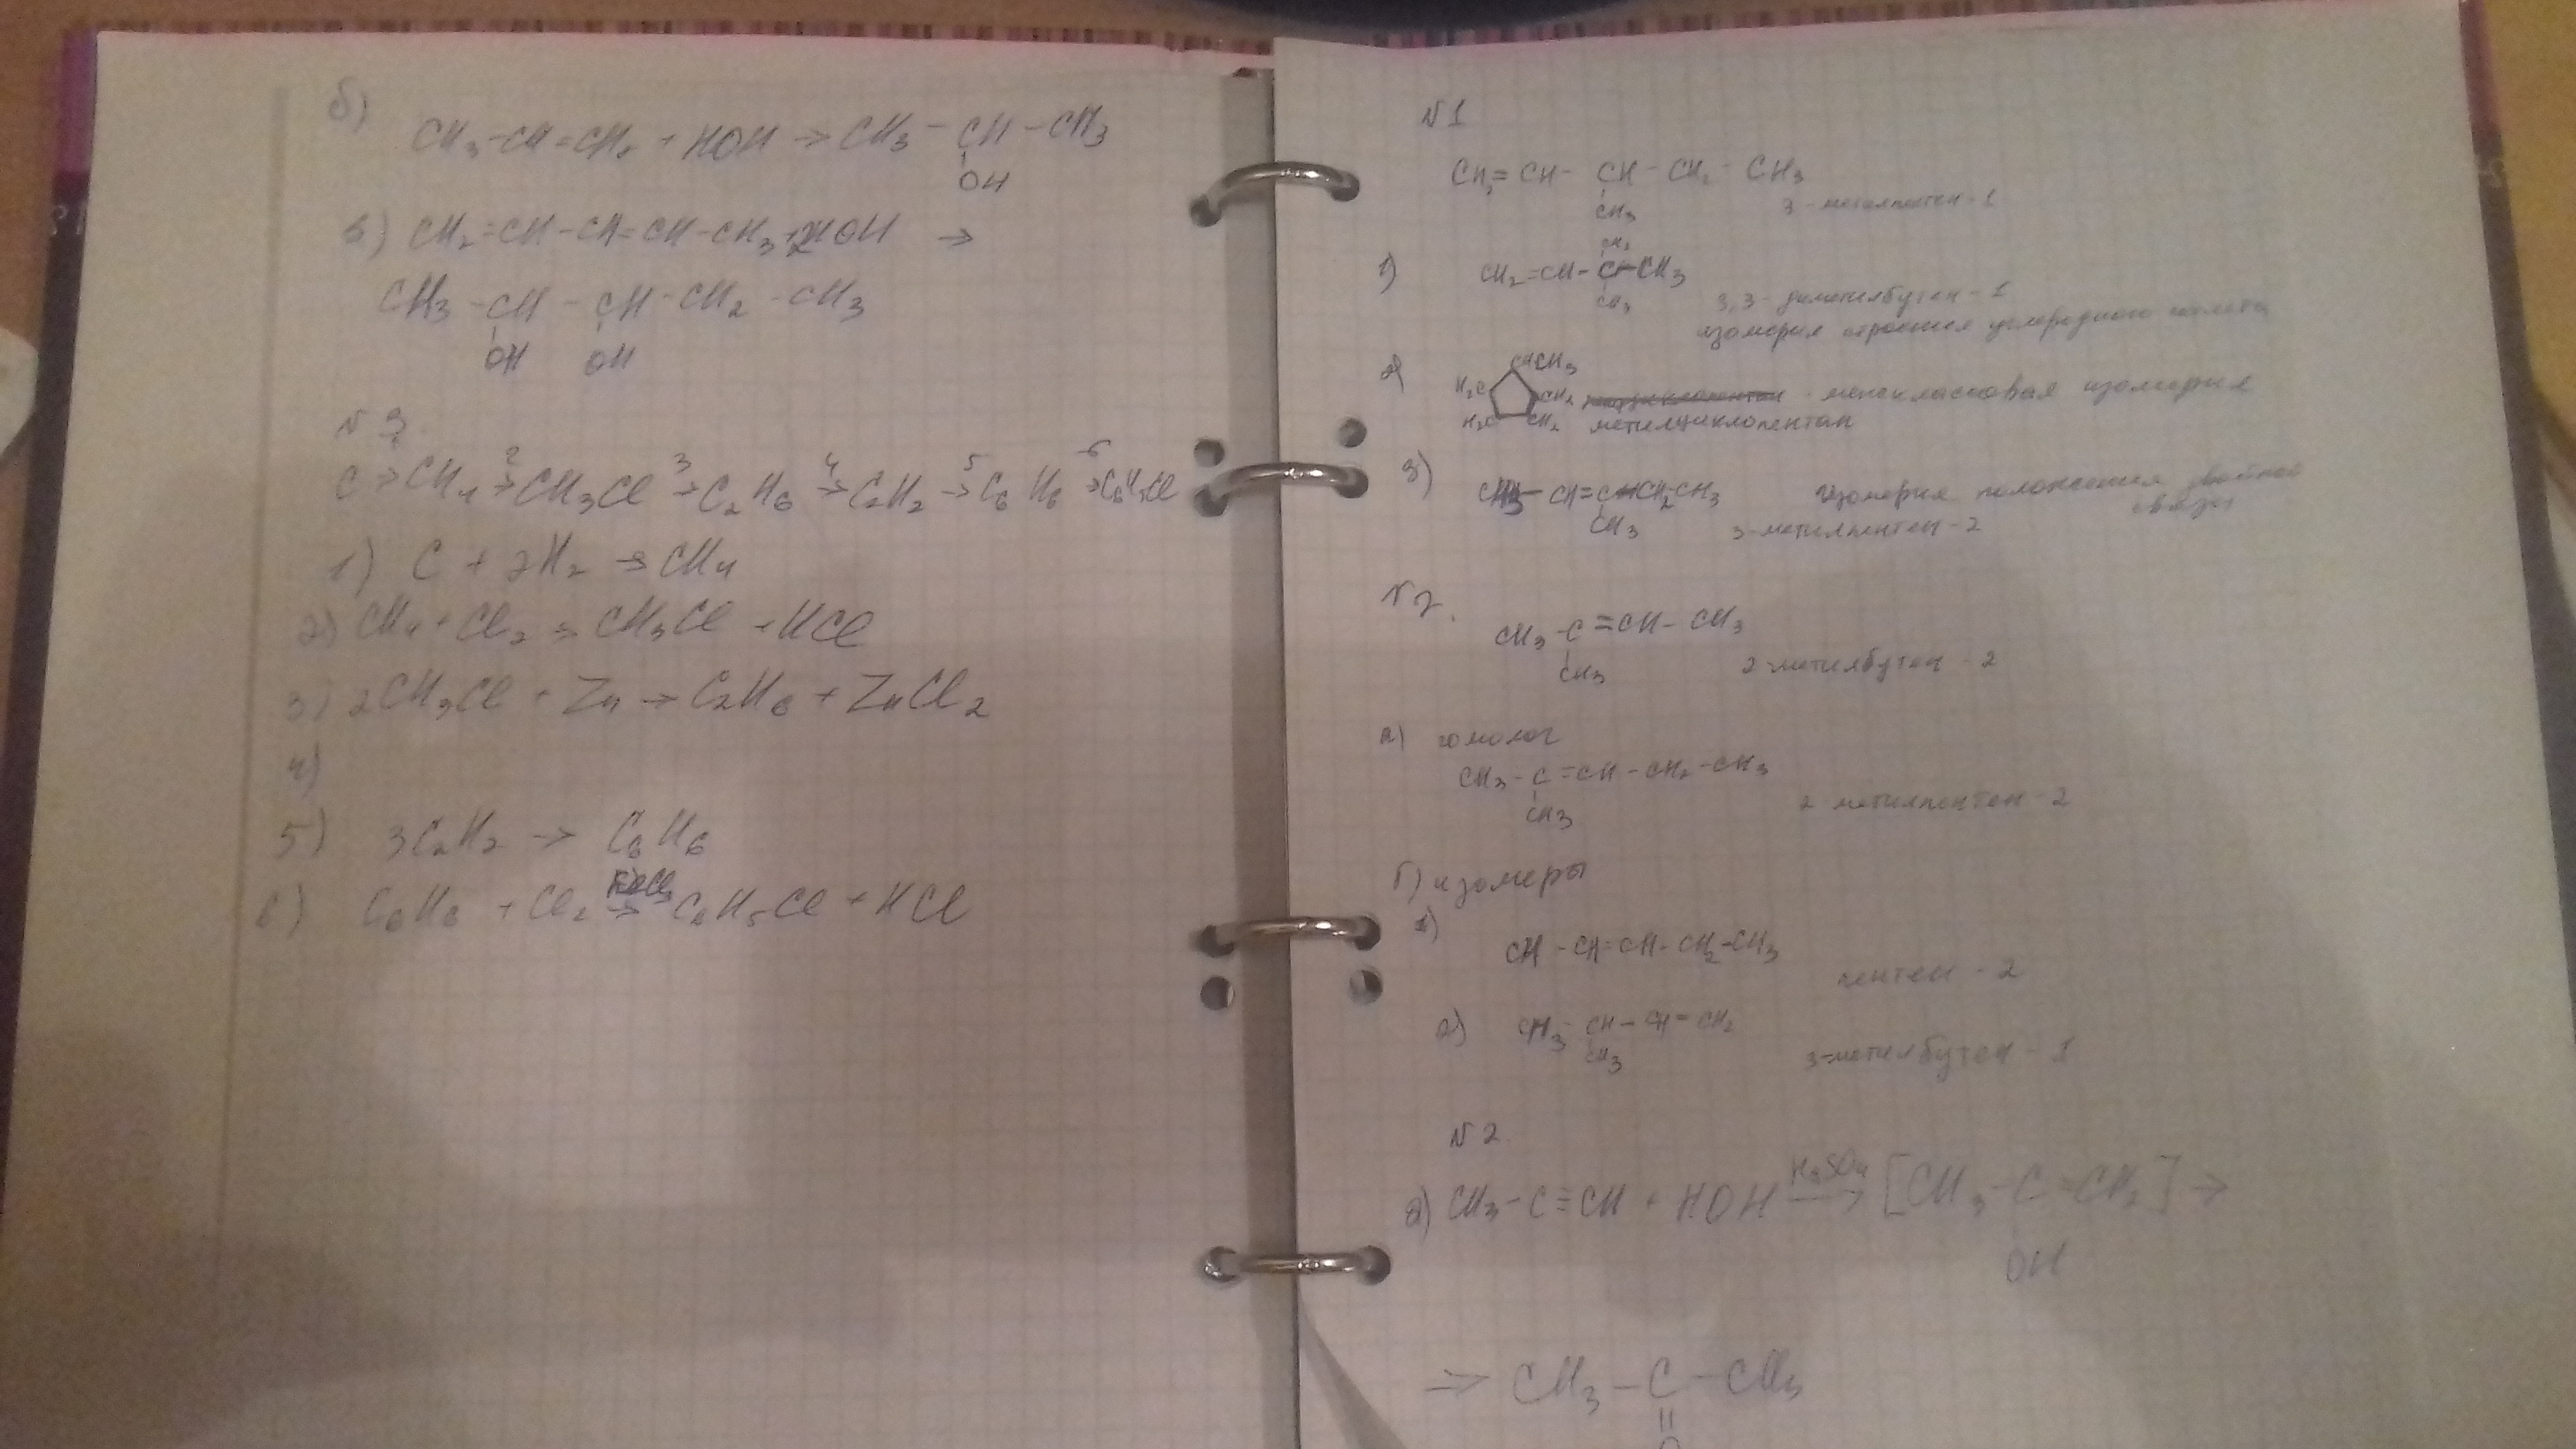 б)
CH3-CH=CH2 + HOH → CH3 - CH - CH3
OH
в) CH2=CH-CH=CH-CH3+2HOH →
CH3 - CH - CH - CH2 - CH3
OH OH
N 3
1 2 3 4 5 6
C → CH4 → CH3Cl → C2H6 → C2H2 → C6H6 → C6H5Cl
1) C + 2H2 → CH4
2) CH4 + Cl2 → CH3Cl + HCl
3) 2CH3Cl + Zn → C2H6 + ZnCl2
4)
5) 3C2H2 → C6H6
FeCl3
6) C6H6 + Cl2 → C6H5Cl + HCl
N1
CH2=CH - CH - CH2 - CH3
CH3 3-метилпентен-1
CH3
1) CH2=CH-C-CH3
CH3 3,3-диметилбутен-1
изомерия строения углеродного скелета
2) CHCH3
H2C CH2 - межклассовая изомерия
H2C CH2 метилциклопентан
3) CH3-CH=C-CH2-CH3 изомерия положения двойной
CH3 связи
3-метилпентен-2
N2.
CH3-C=CH-CH3
CH3 2-метилбутен-2
а) гомолог
CH3-C=CH-CH2-CH3
CH3 2-метилпентен-2
б) изомеры
1)
CH-CH=CH-CH2-CH3
пентен-2
2) CH3-CH-CH=CH2
CH3 3-метилбутен-1
N2
H2SO4
а) CH3-C≡CH + HOH → [CH3-C=CH2] →
OH
→ CH3-C-CH3
O